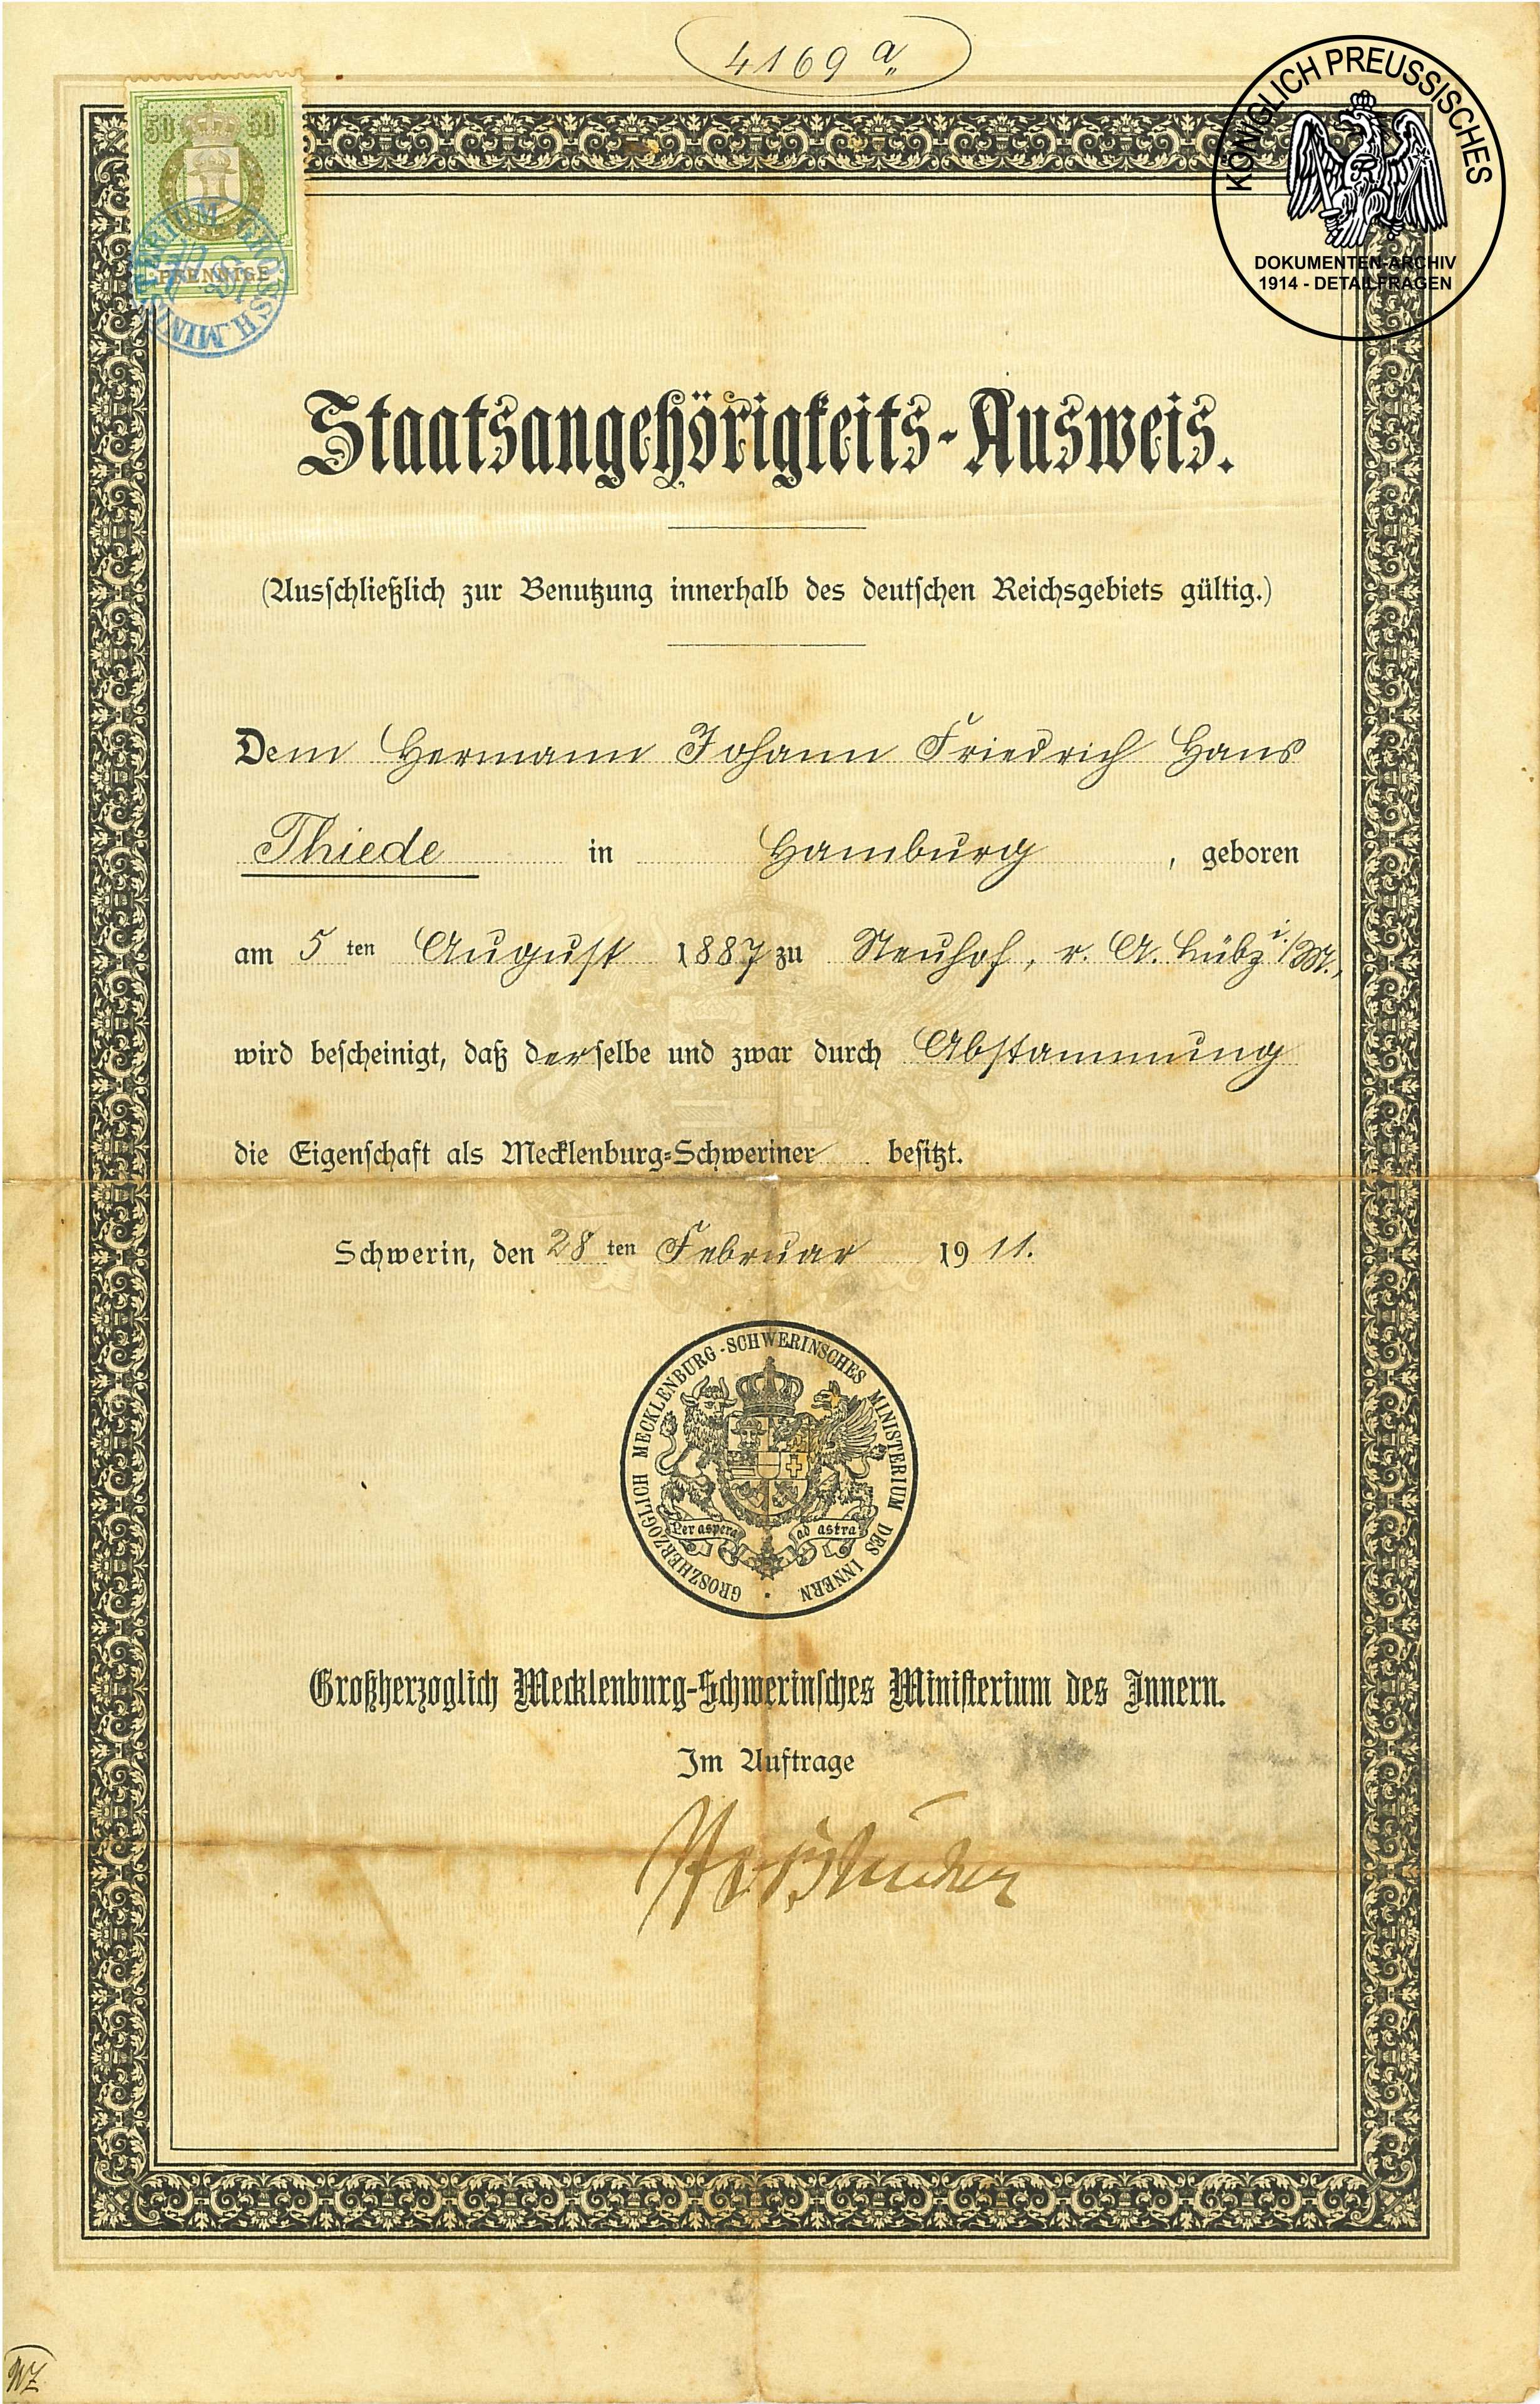 4169 a
KÖNIGLICH PREUSSISCHES
DOKUMENTEN-ARCHIV
1914 - DETAILFRAGEN
50 50
PFENNIGE
GROSSH. MINISTERIUM
Staatsangehörigkeits-Ausweis.
(Ausschließlich zur Benutzung innerhalb des deutschen Reichsgebiets gültig.)
Dem Hermann Johann Friedrich Hans
Thiede in Hamburg, geboren
am 5ten August 1887 zu Neuhof, r. A. Lübz i./M.,
wird bescheinigt, daß derselbe und zwar durch Abstammung
die Eigenschaft als Mecklenburg-Schweriner besitzt.
Schwerin, den 28ten Februar 1911.
GROSZHERZOGLICH MECKLENBURG-SCHWERINSCHES MINISTERIUM DES INNERN
Per aspera ad astra
Großherzoglich Mecklenburg-Schwerinsches Ministerium des Innern.
Im Auftrage